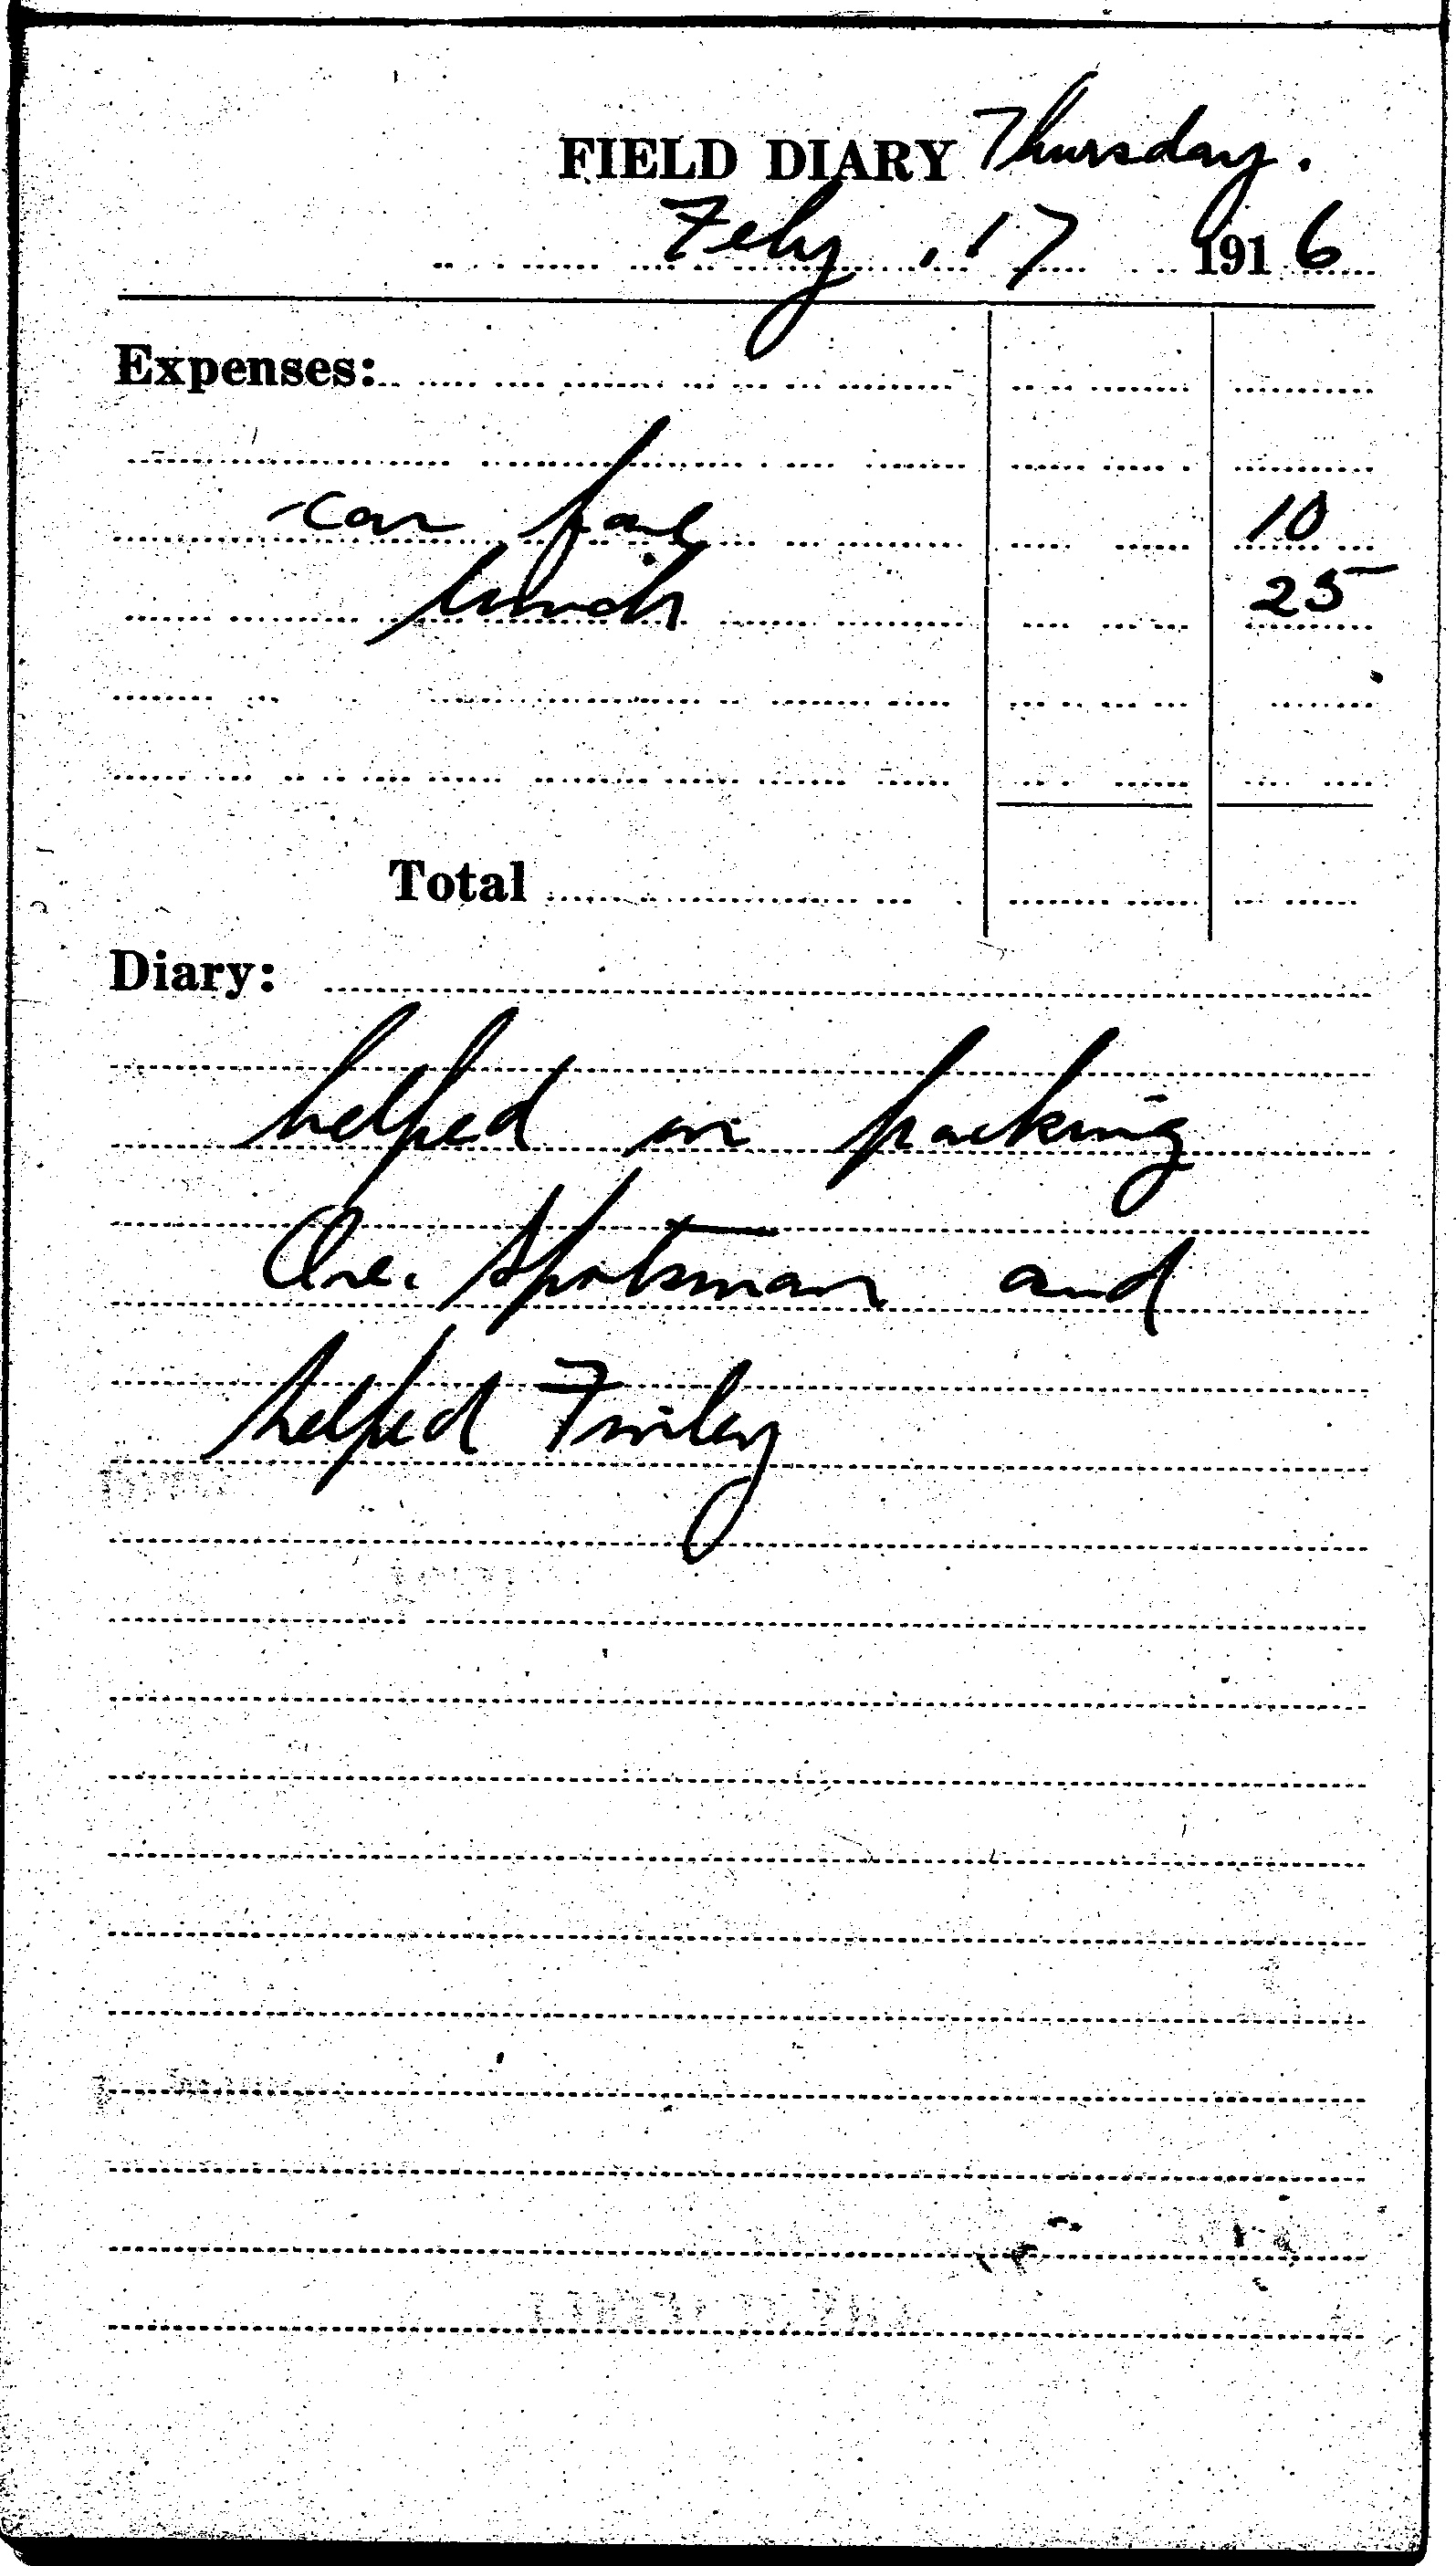 FIELD DIARY Thursday.
Feby. 17 1916
Expenses:
car fare 10
lunch 25
Total
Diary:
helped in packing
Ore. Spotsman and
helped Finley